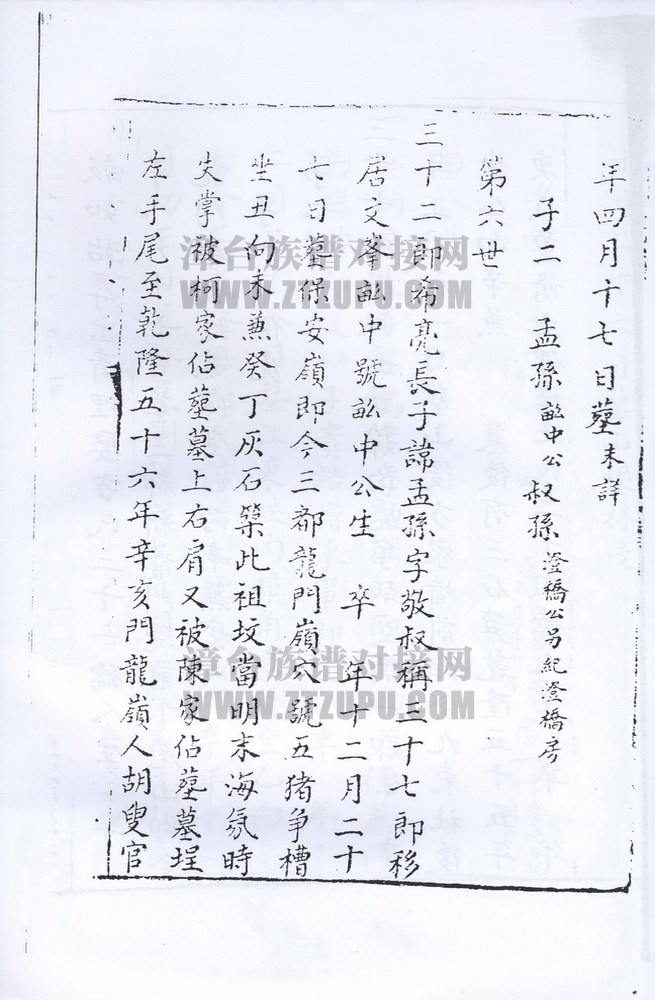 年四月十七日墓未詳
子二 孟孫畆中公叔孫澄橋公另紀澄橋房
第六世
三十二郎希亮長子諱孟孫字敬叔稱三十七郎移
居文峯畆中號畆中公生 卒 年十二月二十
七日墓保安嶺即今三都龍門嶺穴號五猪争槽
坐丑向未兼癸丁灰石築此祖坟當明末海氛時
失掌被柯家佔塟墓上右肩又被陳家佔塟墓埕
左手尾至乾隆五十六年辛亥門龍嶺人胡叟官
漳台族谱对接网
WWW.ZTZUPU.COM
漳台族谱对接网
WWW.ZTZUPU.COM